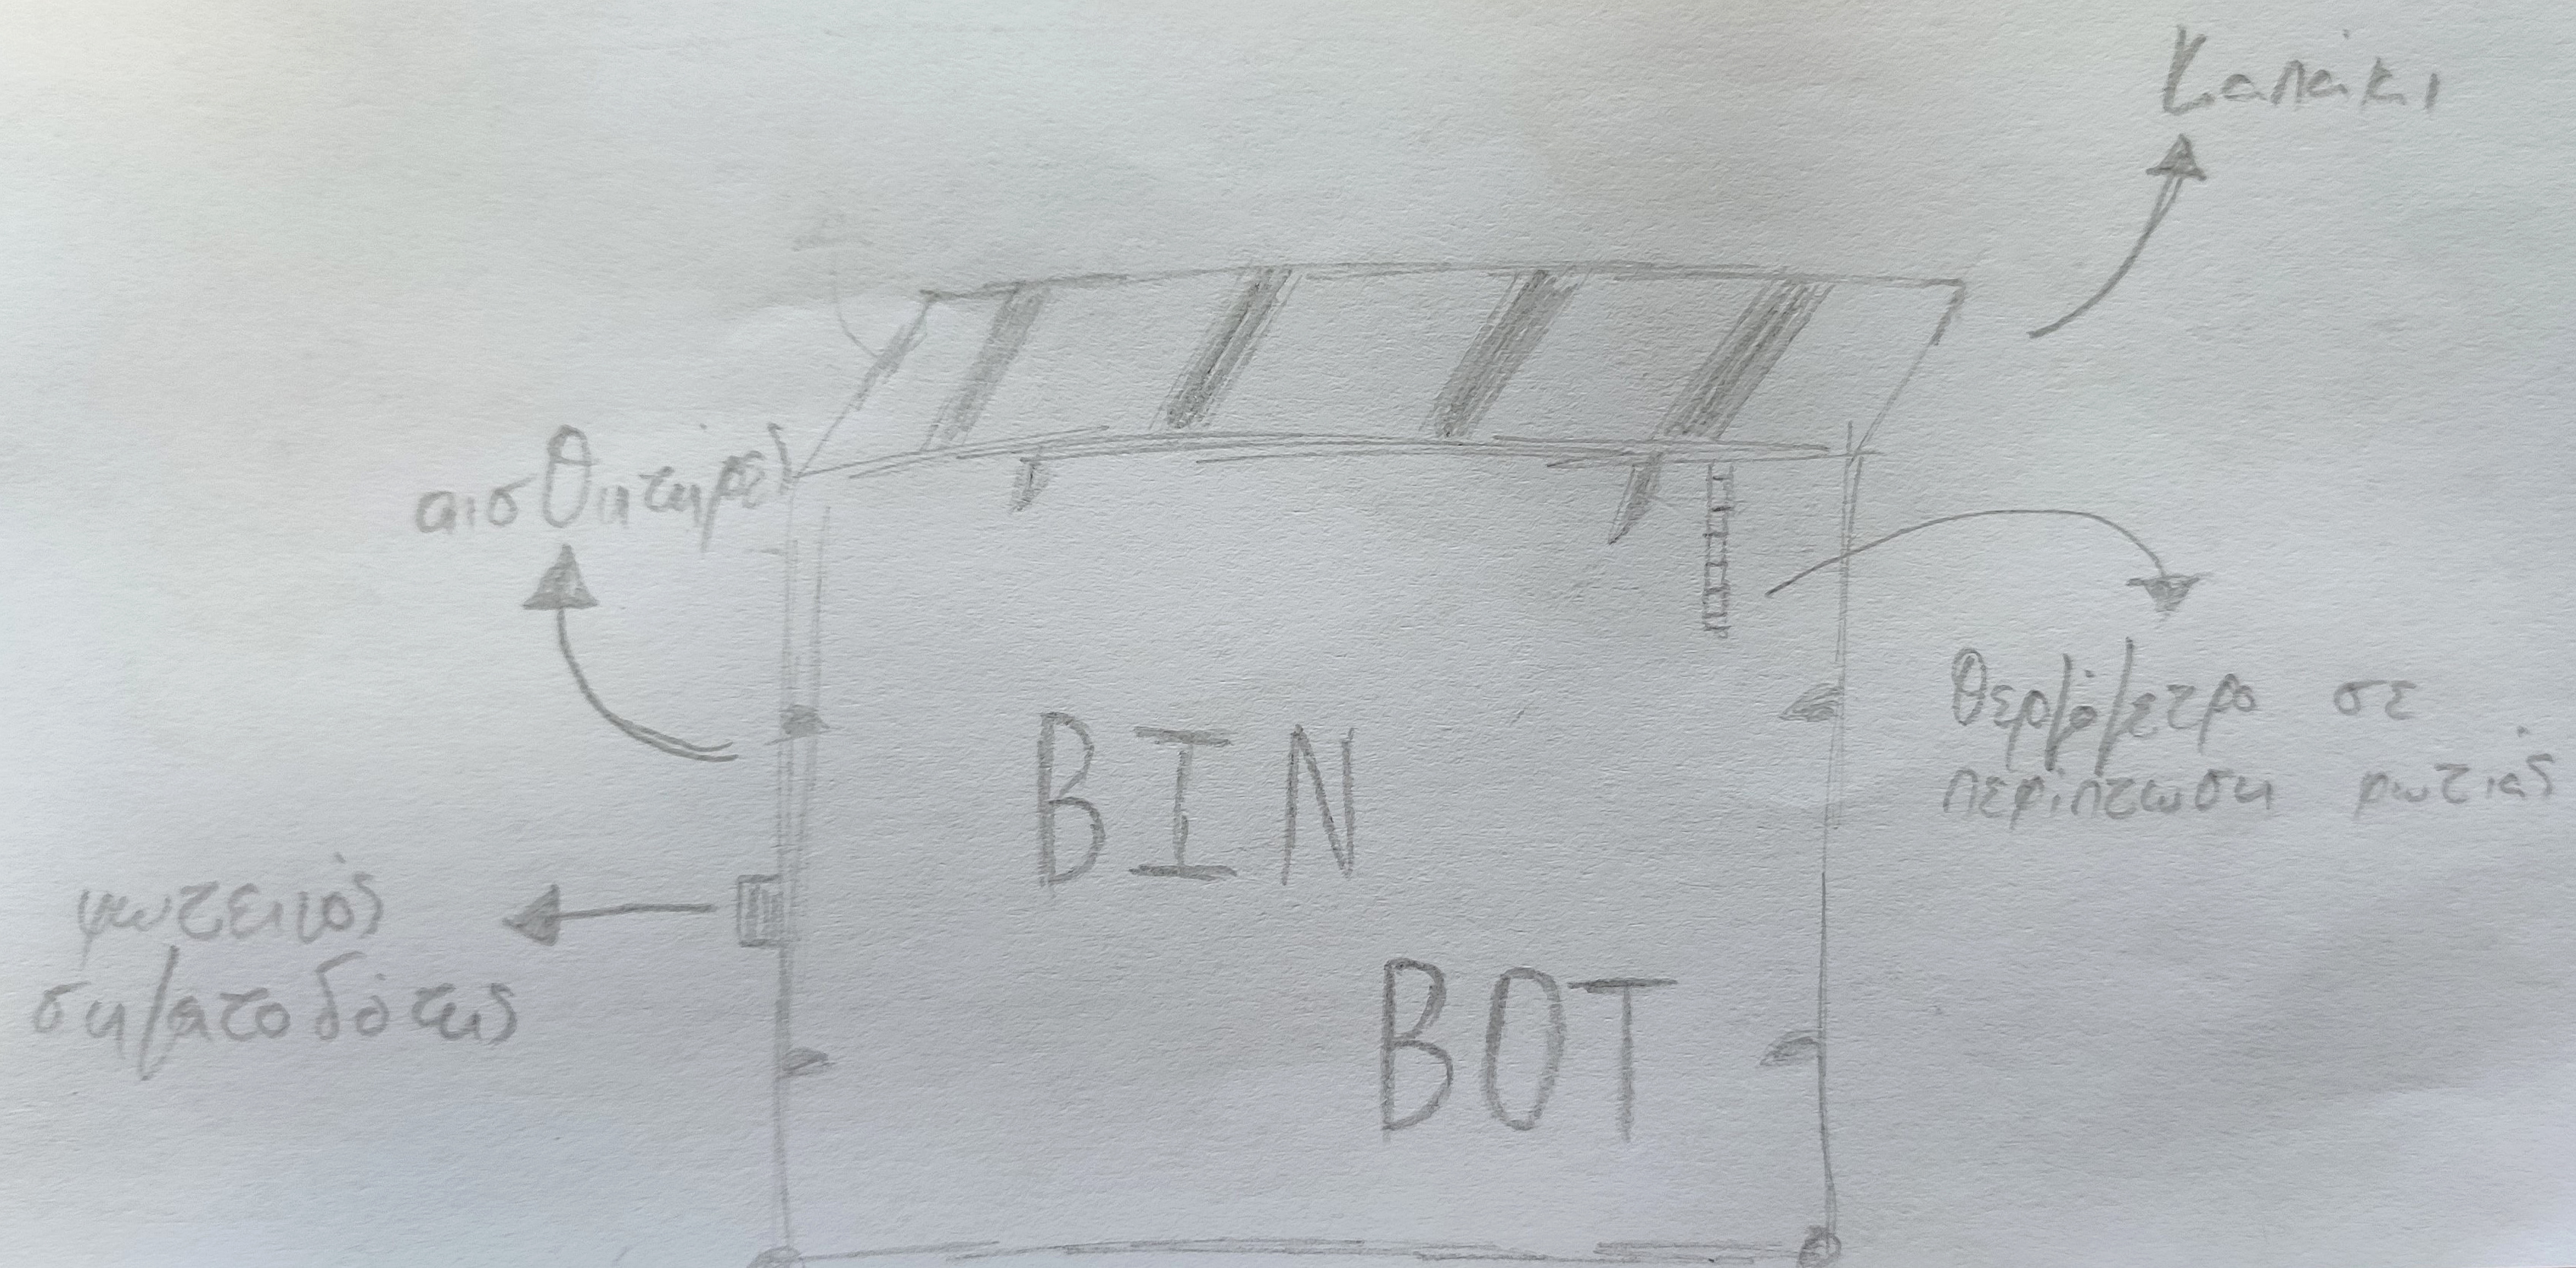 καπάκι
αισθητήρες
θερμόμετρο σε
περίπτωση φωτιάς
BIN
φωτεινός
σηματοδότης
BOT